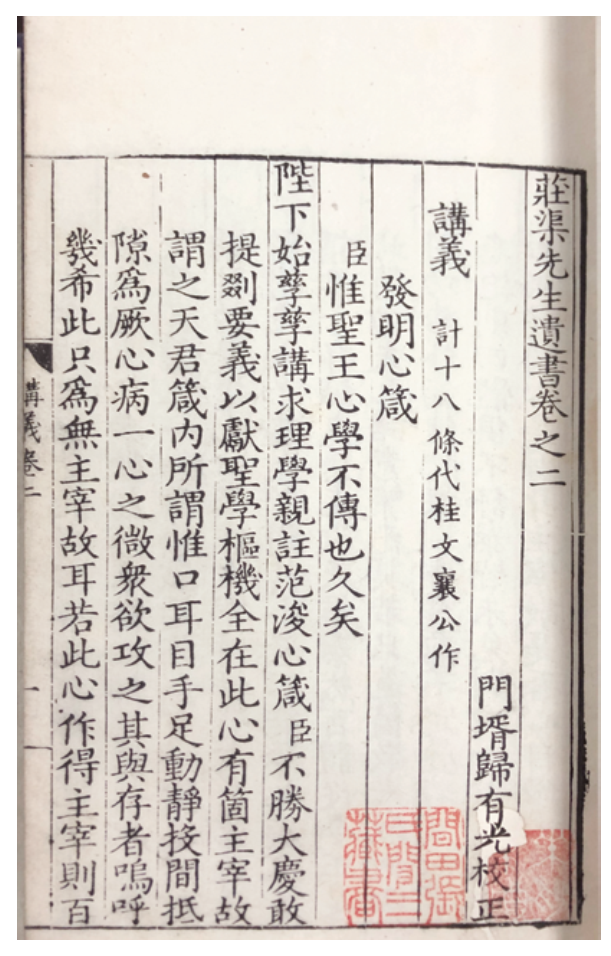 莊渠先生遺書卷之二
門壻歸有光校正
講義 計十八條代桂文襄公作
發明心箴
臣惟聖王心學不傳也久矣
陛下始孳孳講求理學親註范浚心箴臣不勝大慶敢
提剟要義以獻聖學樞機全在此心有箇主宰故
謂之天君箴内所謂惟口耳目手足動靜投間抵
隙爲厥心病一心之微衆欲攻之其與存者嗚呼
幾希此只爲無主宰故耳若此心作得主宰則百
講義卷二
一